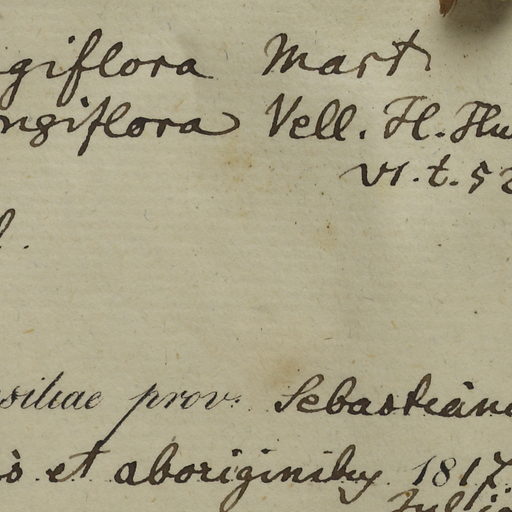 giflora Mart
ngiflora Vell. Fl. Flu
VI. t. 52
siliae prov. Sebastian
et aboriginiby 1817
Juli